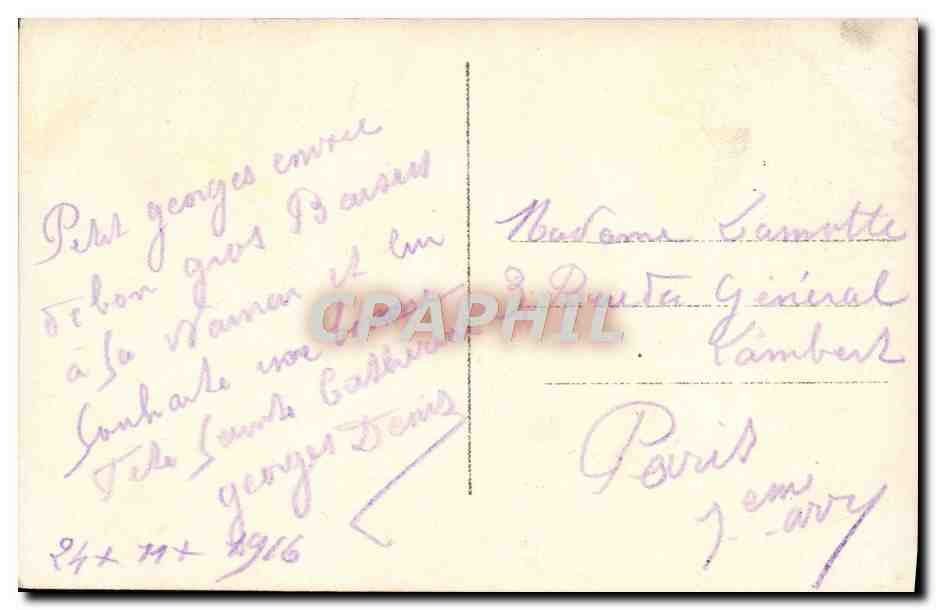 Petit georges envoie
de bon gros Baisers
à sa Maman et lui
souhaite une bonne
Fete Sainte Catherine
georges Denis
24 + 11 + 1916
Madame Lamotte
3 Rue du Général
Lambert
Paris
7em arr
CPAPHIL